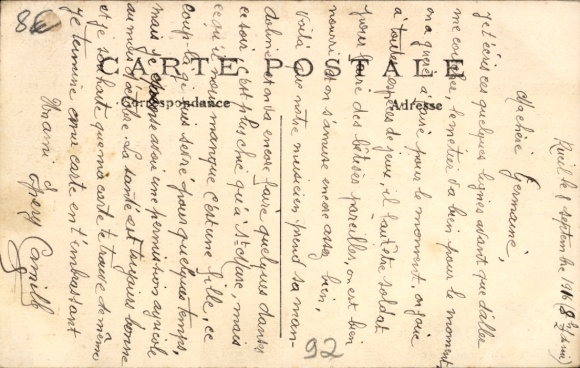 CARTE POSTALE
Correspondance
Adresse
8€
92
Rueil le 8 septembre 1916 (8h 1/2 du soir)
Ma chère Germaine,
Je t'écris ces quelques lignes avant que d'aller
me coucher, le métier va bien pour le moment,
on a guère à faire pour le moment, on joue
à toutes espèces de jeux, il faut être soldat
pour faire des bêtises pareilles, on est bien
nourri et on s'amuse encore assez bien,
Voilà que notre musicien prend sa man-
doline et on va encore faire quelques danses
ce soir, c'est plus chic qu'à St , mais
ce qui nous manque c'est une fille, ce
coup là qui nous serve pour quelques temps,
mais je avoir une permission agricole
au mois d'octobre. La santé est toujours bonne
et je souhaite que ma carte te trouve de même
Je termine ma carte en t'embrassant
Ton ami Camille